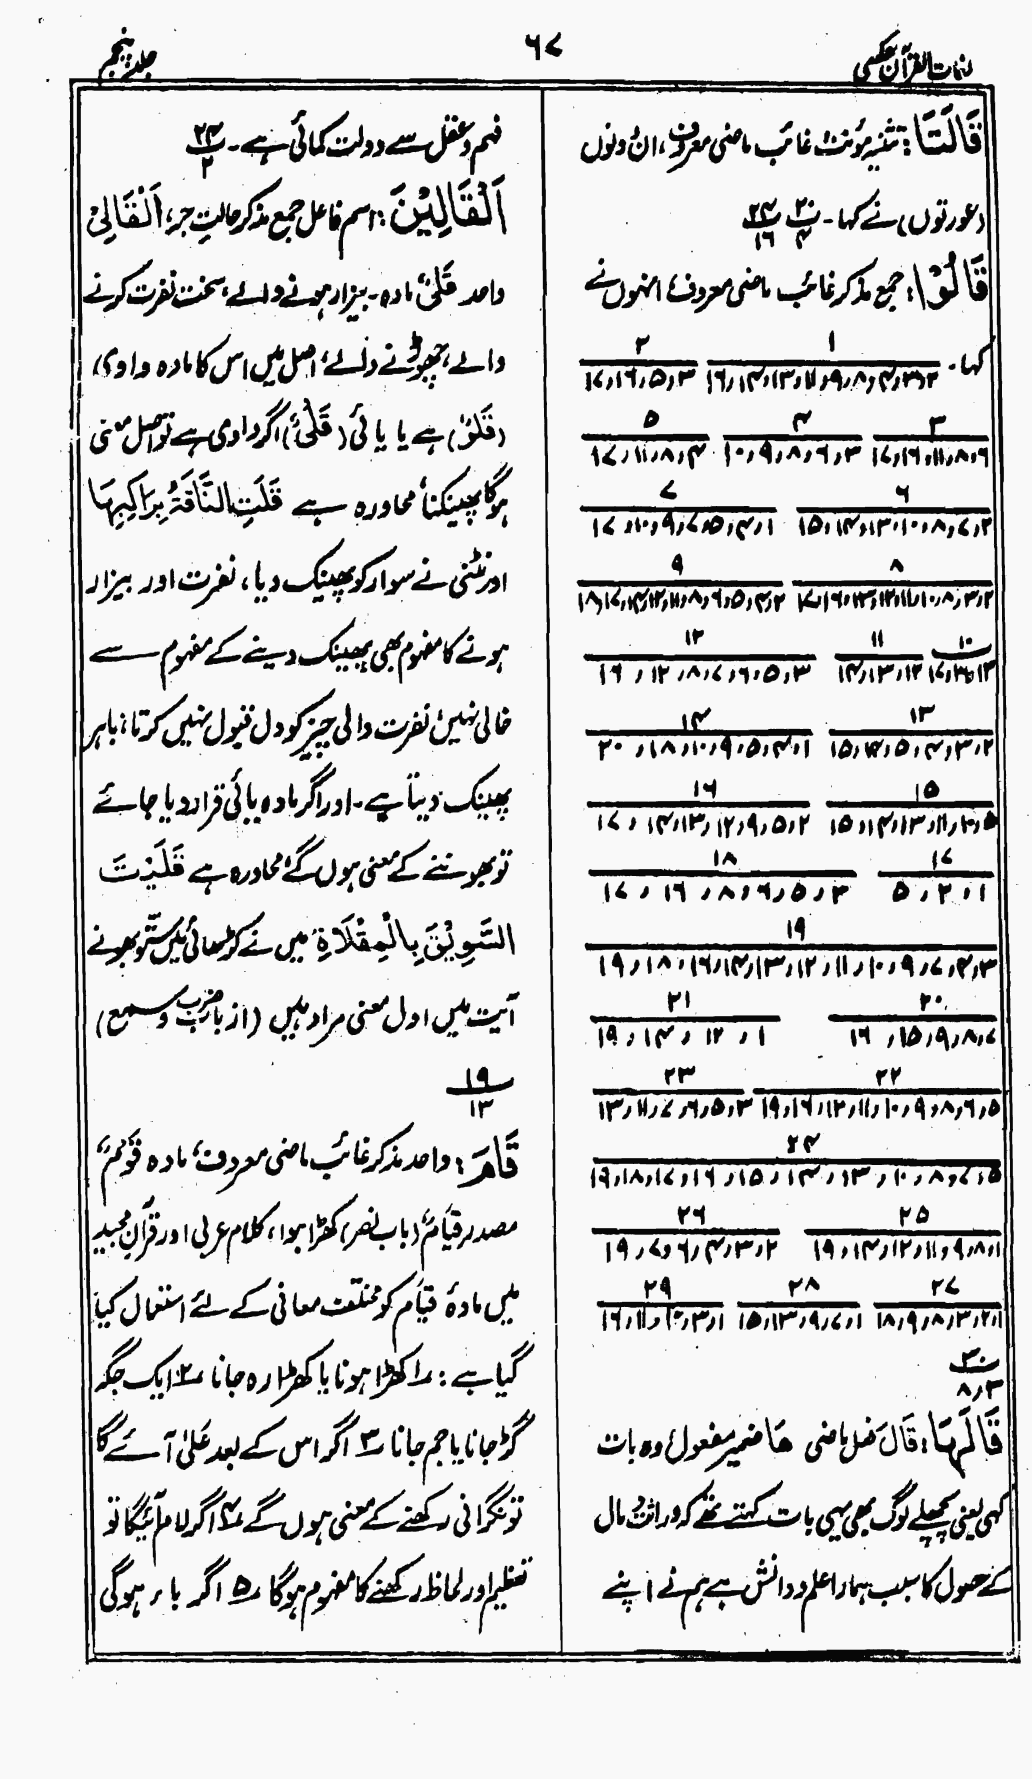 لغات القرآن عکسی
۶۷
جلد پنجم
قَالَتَا: تثنیہ مؤنث غائب ماضی معروف، ان دونوں
(عورتوں) نے کہا۔ پ۲۰/۴ پ۲۴/۱۶
قَالُوْا: جمع مذکر غائب ماضی معروف، انہوں نے
کہا۔ ۱ ۲
۳ ۴ ۵
۶ ۷
۲،۷،۸،۱۰،۱۳،۱۴،۱۵ ۱،۴،۵،۷،۹،۱۰،۱۷
۸ ۹
۱۰ ۱۱ ۱۲
۱۲،۱۳،۱۴ ۳،۵،۶،۷،۸،۱۲،۱۶
۱۳ ۱۴
۲،۳،۴،۵،۱۴،۱۵ ۱،۴،۵،۹،۱۰،۱۸،۲۰
۱۵ ۱۶
۲،۵،۹،۱۲،۱۳،۱۴،۱۷
۱۷ ۱۸
۱،۲،۵ ۳،۵،۶،۸،۱۶،۱۷
۱۹
۳،۴،۷،۹،۱۰،۱۱،۱۲،۱۳،۱۴،۱۶،۱۸،۱۹
۲۰ ۲۱
۷،۸،۹،۱۵،۱۶ ۱،۱۲،۱۴،۱۹
۲۲ ۲۳
۵،۶،۸،۹،۱۰،۱۱،۱۲،۱۶،۱۹ ۳،۵،۶،۷،۱۱،۱۳
۲۴
۵،۷،۸،۱۰،۱۳،۱۴،۱۵،۱۶،۱۷،۱۸،۱۹
۲۵ ۲۶
۱،۸،۹،۱۱،۱۲،۱۴،۱۹ ۲،۳،۴،۶،۷،۱۹
۲۷ ۲۸ ۲۹
۱،۲،۳،۸،۹،۱۸ ۱،۷،۹،۱۳،۱۵ ۱،۳،۱۰،۱۱،۱۶
۳۰
۳،۸
قَالَہَا: قَالَ فعل ماضی ھَا ضمیر مفعول، وہ بات
کہی یعنی پچھلے لوگ بھی یہی بات کہتے تھے کہ وراثتِ مال
کے حصول کا سبب ہمارا علم و دانش ہے ہم نے اپنے
فہم و عقل سے دولت کمائی ہے۔ پ۲۴/۲
اَلْقَالِیْنَ: اسم فاعل جمع مذکر حالتِ جر، اَلْقَالِیْ
واحد قَلْیٌ مادہ۔ بیزار ہونے والے، سخت نفرت کرنے
والے، چھوڑنے والے، اصل میں اس کا مادہ واوی،
(قَلْوٌ) ہے یا یائی (قَلْیٌ) اگر واوی ہے تو اصل معنی
ہوگا پھینکنا، محاورہ ہے قَلَتِ النَّاقَۃُ بِرَاکِبِہَا
اونٹنی نے سوار کو پھینک دیا، نفرت اور بیزار
ہونے کا مفہوم بھی پھینک دینے کے مفہوم سے
خالی نہیں، نفرت والی چیز کو دل قبول نہیں کرتا، باہر
پھینک دیتا ہے۔ اور اگر مادہ یائی قرار دیا جائے
تو بھوننے کے معنی ہوں گے، محاورہ ہے قَلَیْتُ
السَّوِیْقَ بِالْمِقْلَاۃِ میں نے کڑھائی میں ستو بھونے
آیت میں اول معنی مراد ہیں (از باب ضرب و سمع)
۱۹
۱۳
قَامَ: واحد مذکر غائب ماضی معروف، مادہ قَوْمٌ،
مصدر قِیَامٌ (باب نصر) کھڑا ہوا، کلام عربی اور قرآن مجید
میں مادۂ قیام کو مختلف معانی کے لئے استعمال کیا
گیا ہے: ۱؎ کھڑا ہونا یا کھڑا رہ جانا ۲؎ ایک جگہ
گڑ جانا یا جم جانا ۳؎ اگر اس کے بعد عَلٰی آئے گا
تو نگرانی رکھنے کے معنی ہوں گے ۴؎ اگر لام آئیگا تو
تعظیم اور لحاظ رکھنے کا مفہوم ہوگا ۵؎ اگر باء ہوگی